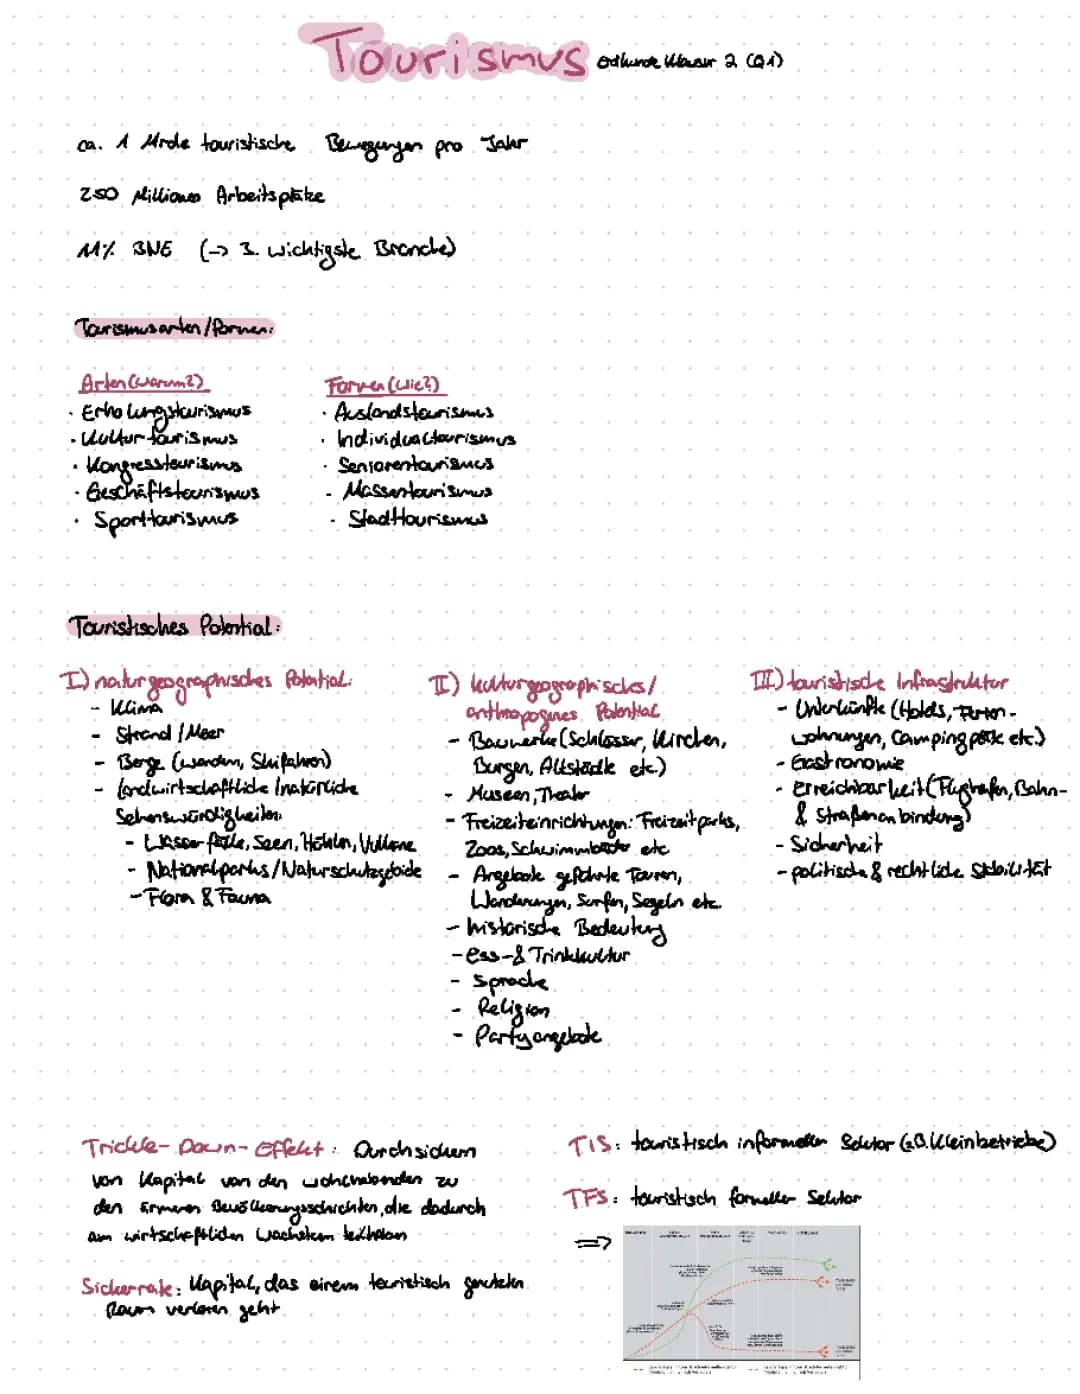 Tourismus Erdkunde Klausur 2 (Q1)
ca. 1 Mrde touristische Bewegungen pro Jahr
250 Millionen Arbeitsplätze
11% BNE (-> 3. wichtigste Branche)
Tourismusarten/Formen:
Arten (warum?)
· Erholungstourismus
· Kulturtourismus
· Kongresstourismus
· Geschäftstourismus
· Sporttourismus
Formen (wie?)
· Auslandstourismus
· Individualtourismus
· Seniorentourismus
- Massentourismus
- Stadttourismus
Touristisches Potential:
I) naturgeographisches Potential:
- Klima
- Strand/Meer
- Berge (wandern, Skifahren)
- landwirtschaftliche/natürliche
Sehenswürdigkeiten:
- Wasserfälle, Seen, Höhlen, Vulkane
- Nationalparks/Naturschutzgebide
- Flora & Fauna
II) kulturgeographisches/
anthropogenes Potential
- Bauwerke (Schlösser, Kirchen,
Burgen, Altstädte etc.)
- Museen, Theater
- Freizeiteinrichtungen: Freizeitparks,
Zoos, Schwimmbäder etc
- Angebote geführte Touren,
Wanderungen, Surfen, Segeln etc.
- historische Bedeutung
- Ess-& Trinkkultur
- Sprache
- Religion
- Partyangebote
III) touristische Infrastruktur
- Unterkünfte (Hotels, Ferien-
wohnungen, Campingplätze etc.)
- Gastronomie
- Erreichbarkeit (Flughafen, Bahn-
& Straßenanbindung)
- Sicherheit
- politische & rechtliche Stabilität
Trickle-Down-Effekt: Durchsickern
von Kapital von den wohlhabenden zu
den ärmeren Bevölkerungsschichten, die dadurch
am wirtschaftlichen Wachstum teilhaben
Sickerrate: Kapital, das einem touristisch genutzten
Raum verloren geht
TIS: touristisch informeller Sektor (z.B. Kleinbetriebe)
TFS: touristisch formeller Sektor
=>